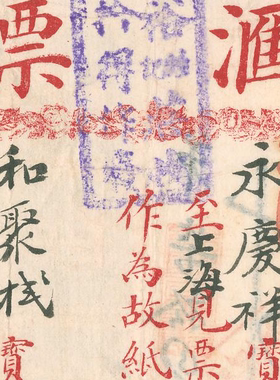 滙票
永慶祥寶
至上海見票
作為故紙
和聚栈寶